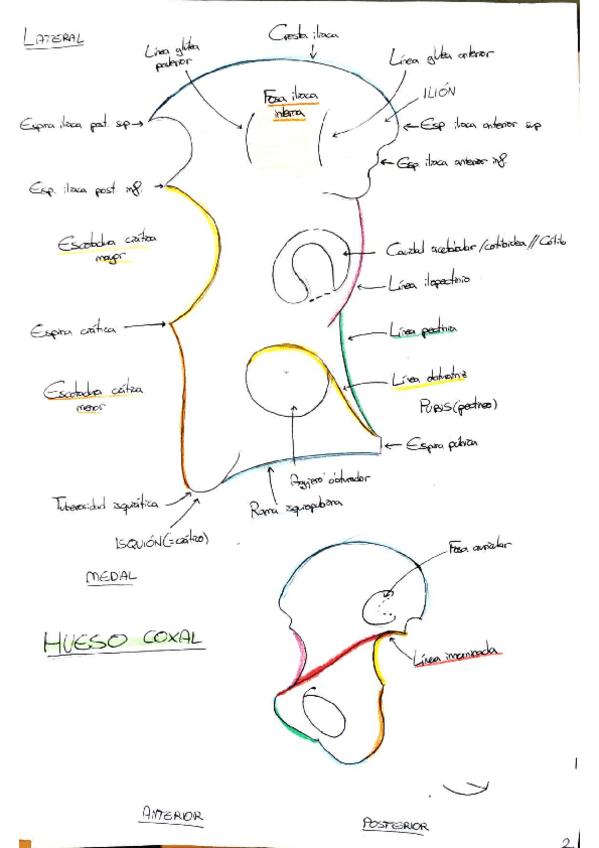 LATERAL
Cresta ilíaca
Línea glútea
posterior
Línea glútea anterior
Fosa ilíaca
interna
ILIÓN
Espina ilíaca post. sup
Esp ilíaca anterior sup
Esp. ilíaca anterior inf.
Esp. ilíaca post inf.
Escotadura ciática
mayor
Cavidad acetabular/cotiloidea//Cótilo
Línea ilopectinia
Espina ciática
Línea pectinia
Escotadura ciática
menor
Línea obturatriz
PUBIS (pectineo)
Espina púbica
Agujero obturador
Tuberosidad isquiática
Rama isquiopubiana
ISQUIÓN (=ciático)
MEDIAL
Fosa auricular
HUESO COXAL
Línea innominada
1
ANTERIOR
POSTERIOR
2